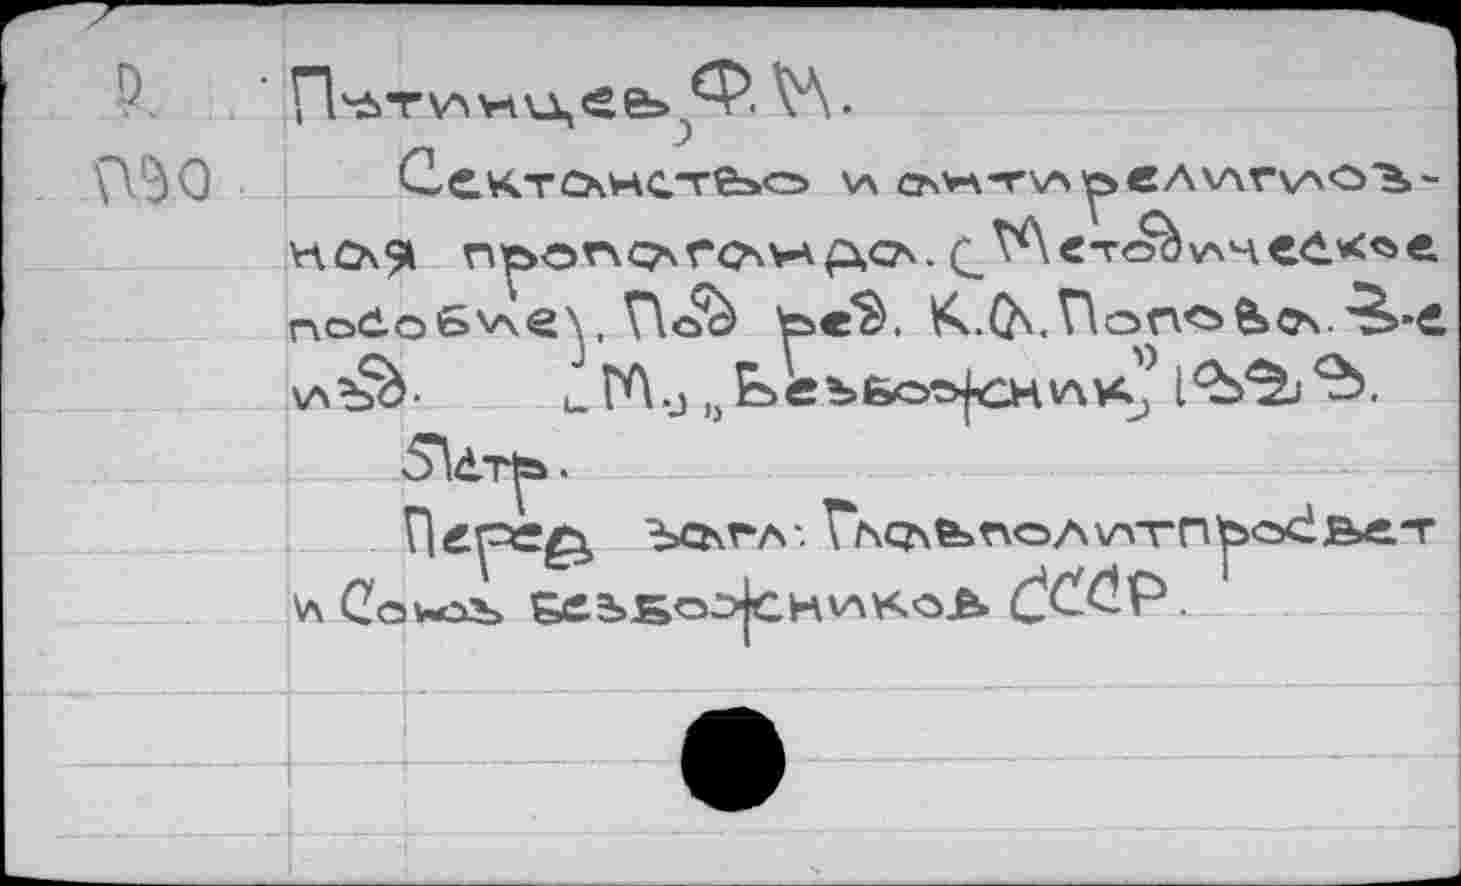 Р. Путинцев, Ф.М.
П90 Сектантство и антирелигиоз-
ная пропаганда. (Методическое
пособие). Под ред. К.А. Попова. 3-е
изд. [М.], „Безбожник", 1929.
51 стр.
Перед загл.: Главполитпросвет
и Союз безбожников СССР.